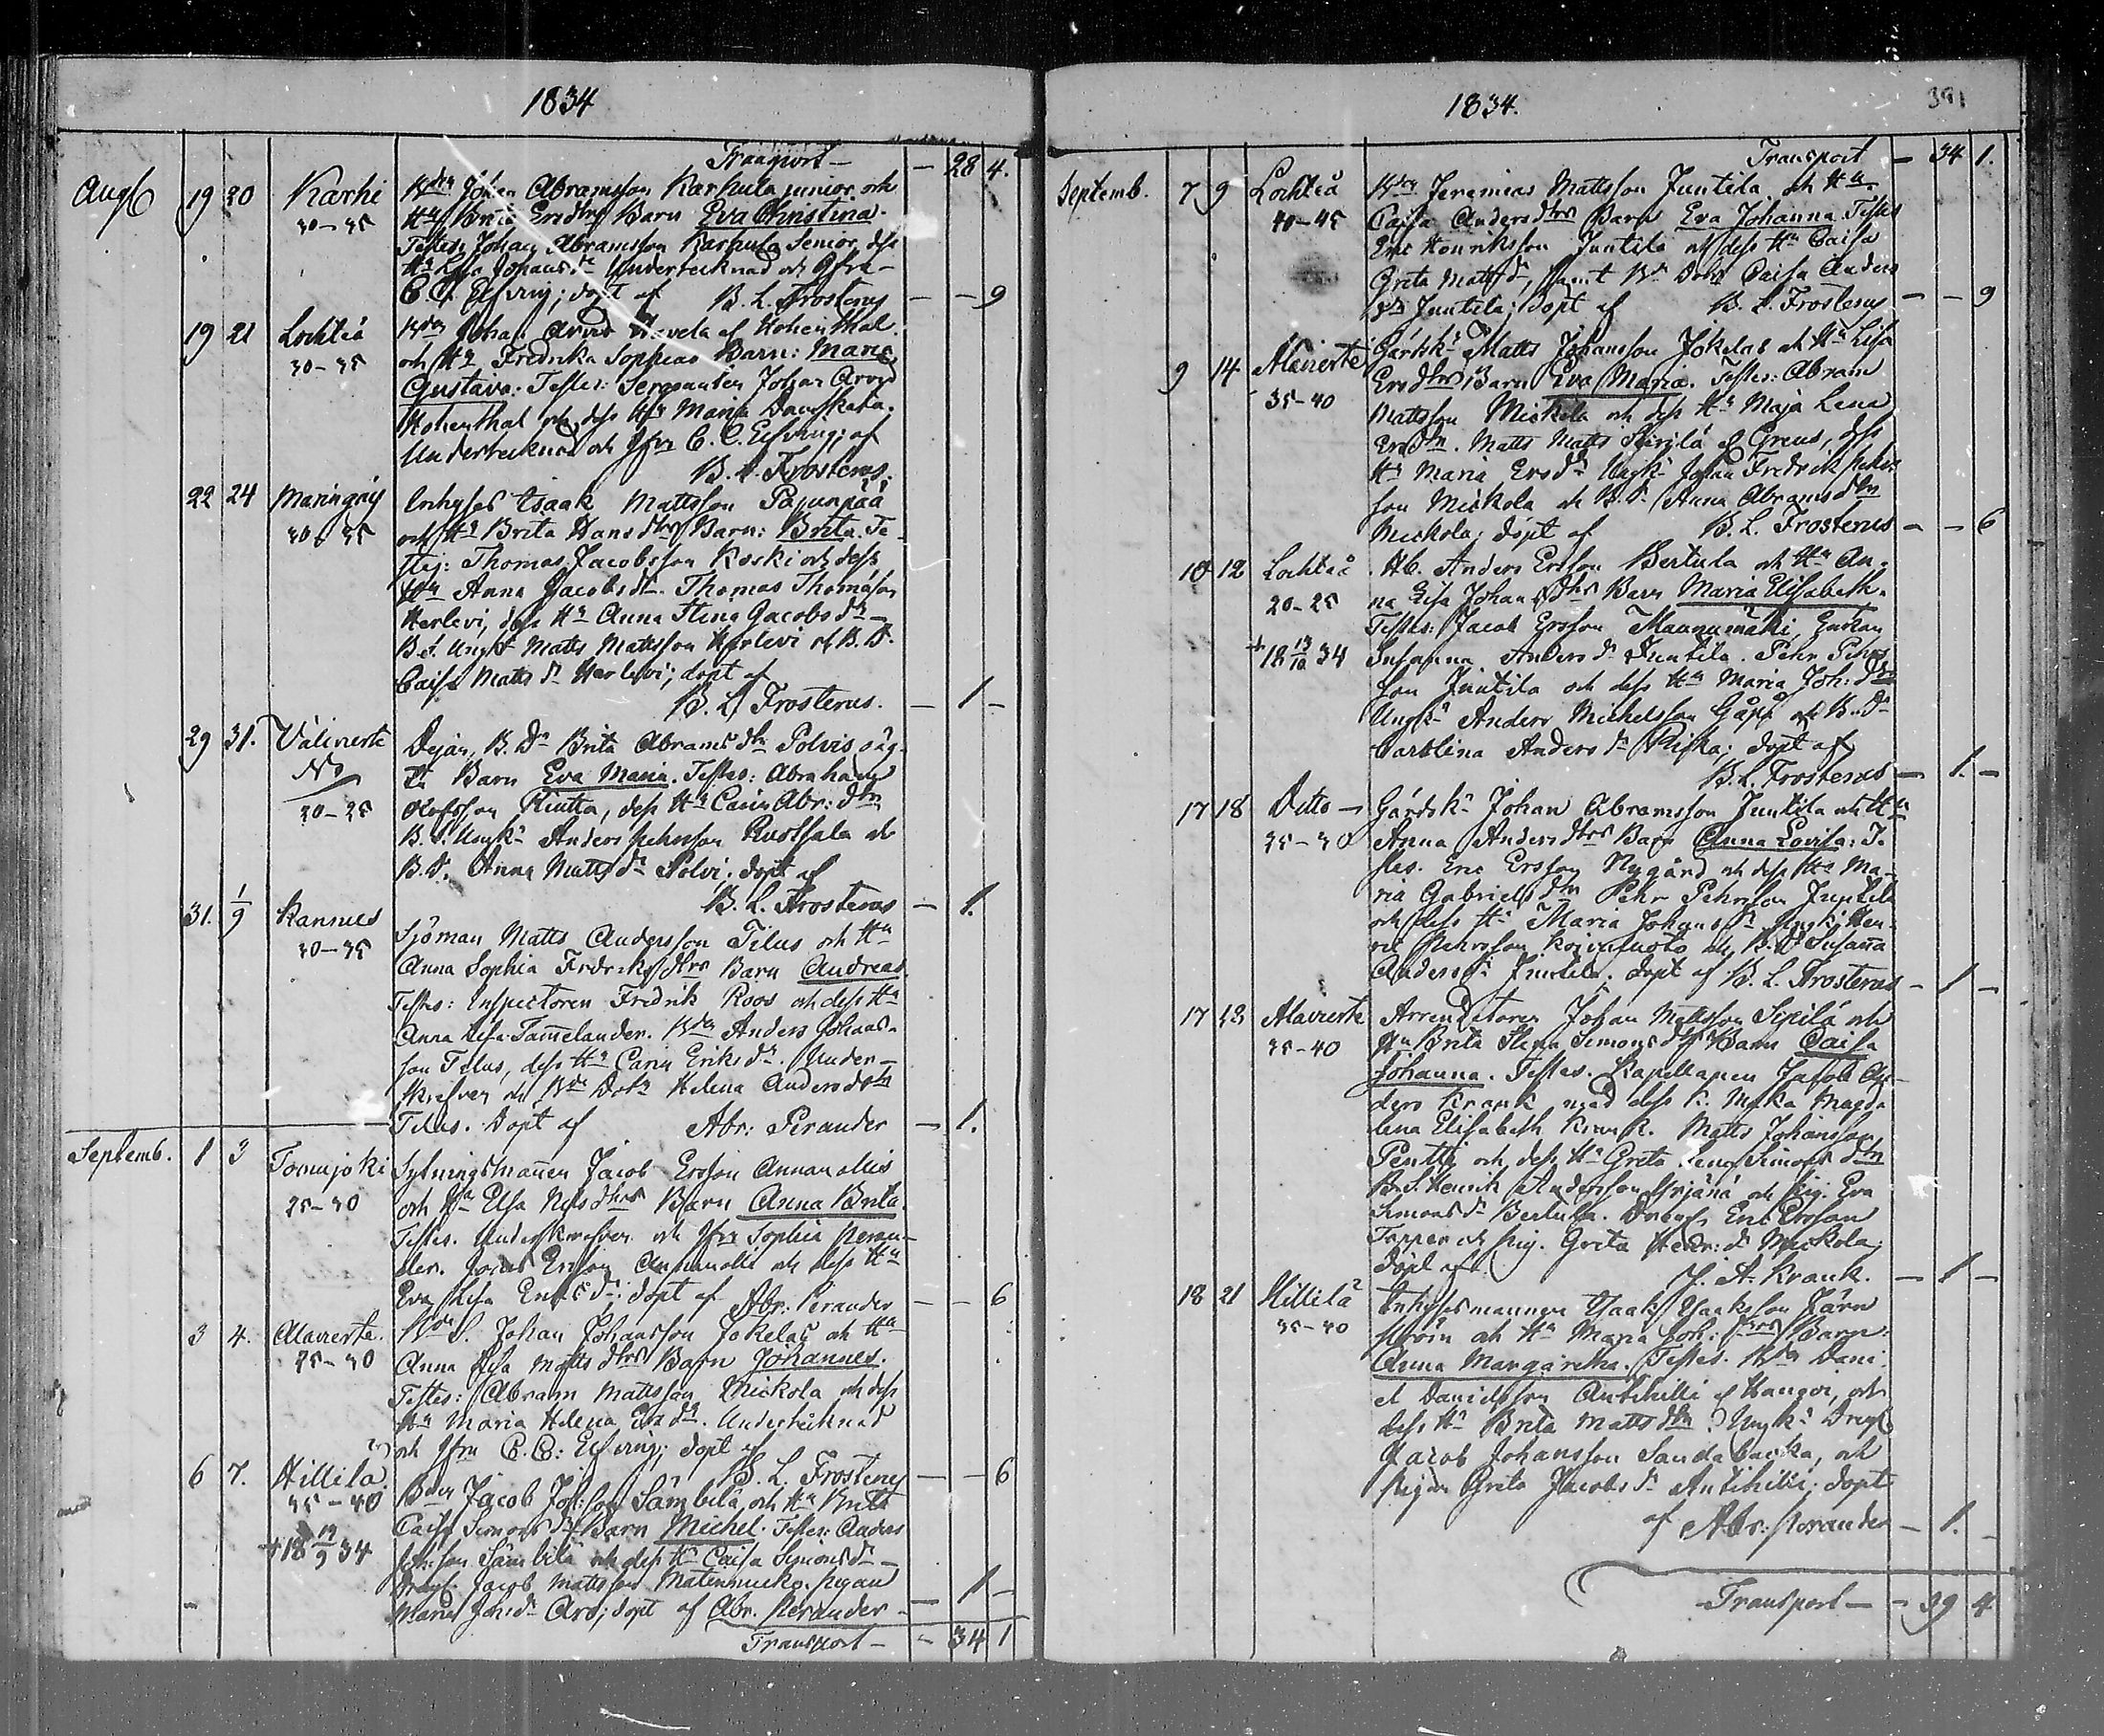 1834
Transport — — 28 4.
Augt 19 20 Karhi Bdn Johan Abramsson Karhula junior och
30-35 Hu Brita Ersdtrs Barn Eva Christina.
Testes: Johan Abramsson Karhula Senior, dess
Hu Lisa Johansdr Undertecknad och Jfru
C. C. Elfving; döpt af B. L. Frosterus — — 9
19 21 Lochteå Bdn Johan Arvid Havela af Hohenthal
30-35 och Hu Fredrika Sophias Barn: Maria
Gustava: Testes: Sergeanten Johan Arvid
Hohenthal och dess Hu Maria
Undertecknad och Jfru C. C. Elfving; af
B. L. Frosterus.
22 24 Maringais Inhyses Isaak Mattsson Pajunpää
30-35 och Hu Brita Hansdtrs Barn: Brita. Te-
stes: Thomas Jacobsson Koski och dess
Hu Anna Jacobsdr. Thomas Thomasson
Herlevi, dess Hu Anna Stina Jacobsdr
B.S. Ungk. Matts Mattsson Herlevi och B. D.
Caisa Mattsdr Herlevi; döpt af
B. L. Frosterus. — 1 —
29 31. Väliverte B. Dr Brita Abramsdtr Polvis oäg-
No ta Barn Eva Maria. Testes: Abraham
20-25 Olofsson Kiutta, dess Hu Carin Abr: dtr
B. S. Ungk. Anders Pehrsson Ruotsala och
B. D. Anna Mattsdr Polvi; döpt af
B. L. Frosterus — 1.
31. 1/9 Kannus Sjöman Matts Andersson Tilus och Hu
30-35 Anna Sophia Fredriksdtrs Barn Andreas.
Testes: Inspectoren Fredrik Roos och dess Hu
Anna Lisa Tamelander. Bdn Anders Johans-
son Tilus, dess Hu Carin Eriksdr. Under-
skrefven och Bde Dotr Helena Andersdotr
Tilus. Döpt af Abr: Perander — 1.
Septemb. 1 3 Tomujoki Sytningsmannen Jacob Ersson Annanollis
25-30 och Hu Elsa Nilsdtrs Barn Anna Brita.
Testes. Underskrefven och Jfru Sophia Peran-
der. Jonas Ersson Annanolli och dess Hu
Eva Lisa Ericsdr; döpt af Abr: Perander — — 6
3 4. Alaverte. Bde S. Johan Johansson Jokelas och Hu
25-30 Anna Lisa Mattsdtrs Barn Johannes.
Testes: Abram Mattsson Mickola och dess
Hu Maria Helena Ersdr. Undertecknad
och Jfru C. C: Elfving; döpt af
B. L. Frosterus — — 6
6 7. Hillilä Bden Jacob Joh:son Sämbilä, och Hu Brita
35-40 Caisa Simonsdtrs Barn Michel. Testes: Anders
+ 18 19/9 34 Joh:son Sämbilä och dess Hu Caisa Simonsdr
Dreng. Jacob Mattsson Pigan
Maria Joh:dr Aro; döpt af Abr. Perander — 1 —
Transport — — 34 1
1834.
391
Transport — 34 1.
Septemb. 7 9 Lochteå Bdn Jeremias Mattsson Juntila och Hu
40-45 Caisa Andersdtrs Barn Eva Johanna Testes
Eric Henriksson Juntila och dess Hu Caisa
Greta Mattsdr, samt Bde Dotr Caisa Anders
dr Juntila; döpt af B. L. Frosterus — — 9
9 14 Alaverte Gårdsk. Matts Johansson Jokelas och Hu Lisa
35-40 Ersdtrs Barn Eva Maria. Testes: Abram
Mattsson Mickola och dess Hu Maja Lena
Ersdtr. Matts Matts Skrilä af Greus, dess
Hu Maria Ersdr. Ungk. Johan Fredrik Pehrs-
son Mickola och B. D. Anna Abramsdtr
Mickola; döpt af B. L. Frosterus — — 6
10 12 Lochteå Hb. Anders Ersson Bertula och Hu An-
20-25 na Lisa Johansdtrs Barn Maria Elisabeth.
Testes: Jacob Ersson Maanumäki, Enkan
+ 18 13/10 34 Susanna Andersdr Juntila. Pehr Pehrs-
son Juntila och dess Hu Maria Joh: dtr
Ungk. Anders Michelsson Gåpå och B. Dr
Carolina Andersdr Riska; döpt af
B. L. Frosterus — 1. —
17 18 Ditto — Gårdsk. Johan Abramsson Juntila och Hu
25-30 Anna Andersdtrs Barn Anna Lovisa: Te-
stes. Eric Ersson Nygård och dess Hu Ma-
ria Gabrielsdtr Pehr Pehrsson Juntila
och dess Hu Maria Johansdr. Ungk. Hen-
ric Pehrsson Koivuluoto och B. D. Susanna
Andersdr Juntila. döpt af B. L. Frosterus — 1 —
17 23 Alaverte Arrendatoren Johan Mattsson Sipilä och
35-40 Hu Brita Stena Simonsdtrs Barn Caisa
Johanna. Testes. Kapellanen Jacob An-
ders Krank med dess k. Maka Magda-
lena Elisabeth Krank. Matts Johansson
Pentti och dess Hu Greta Lena Simonsdtr
B. S. Henrik Andersson Yrjänä och Pig. Eva
Simonsdr Bertula. Drengen Eric Ersson
Topper och Pig. Greta Hedr: dr Mickola;
döpt af J. A. Krank. — 1 —
18 21 Hillilä Inhysesmannen Isaak Isaksson Järn
35-40 och Hu Maria Joh: dtrs Barn:
Anna Margaretha. Testes. Bdn Dani-
el Danielsson Anttihilli af Kangoi, och
dess Hu Brita Mattsdtr. Ungk. Dreng.
Jacob Johansson Sandabacka, och
Pigan Greta Jacobsdr Anttihilli; döpt
af Abr: Perander — 1. —
Transport — — 39 4